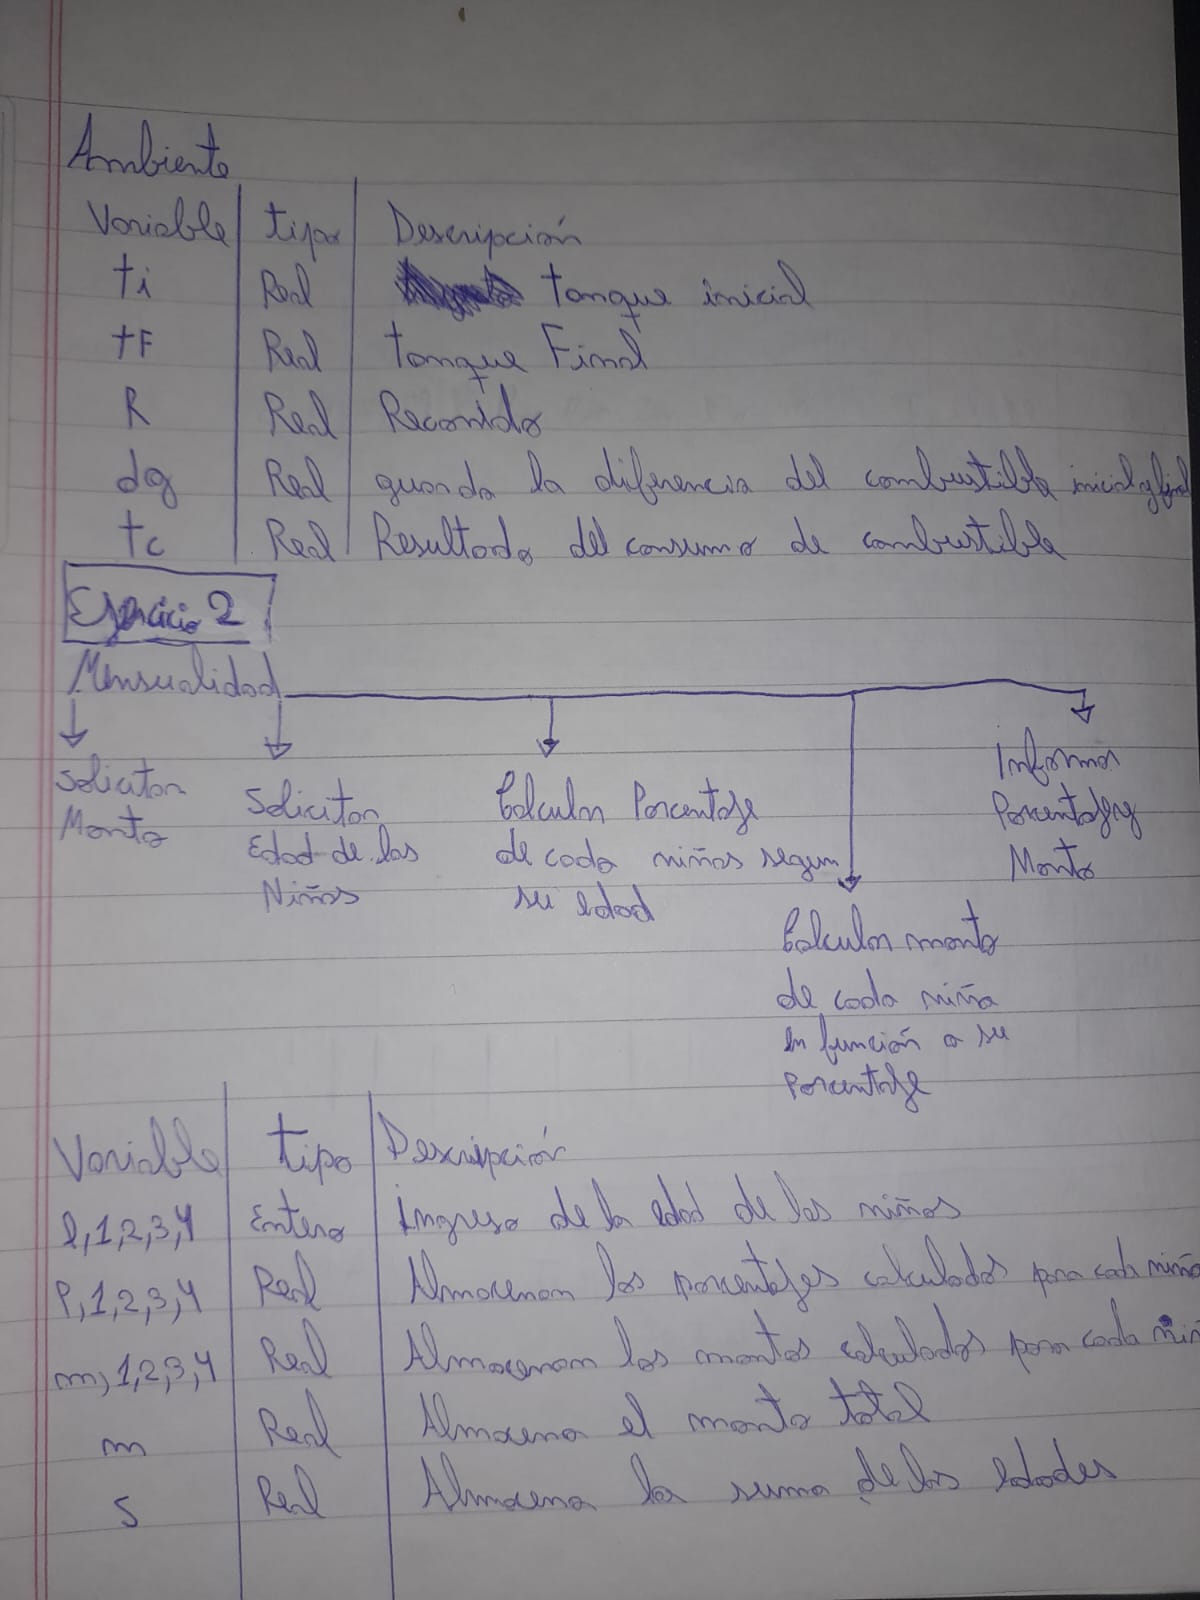 Ambiente
Variable tipo Descripción
ti Real tanque inicial
tF Real tanque Final
R Real Recorrido
dg Real guarda la diferencia del combustible inicial y final
tc Real Resultado del consumo de combustible
Ejercicio 2
Mensualidad
Solicitar
Monto
Solicitar
Edad de los
Niños
Calcular Porcentaje
de cada niños segun
su edad
Calcular monto
de cada niño
en función a su
Porcentaje
Informar
Porcentaje y
Monto
Variable tipo Descripción
e,1,2,3,4 Entero Ingreso de la edad de los niños
P,1,2,3,4 Real Almacenan los porcentajes calculados para cada niño
m,1,2,3,4 Real Almacenan los montos calculados para cada niñ
m Real Almacena el monto total
s Real Almacena la suma de las edades